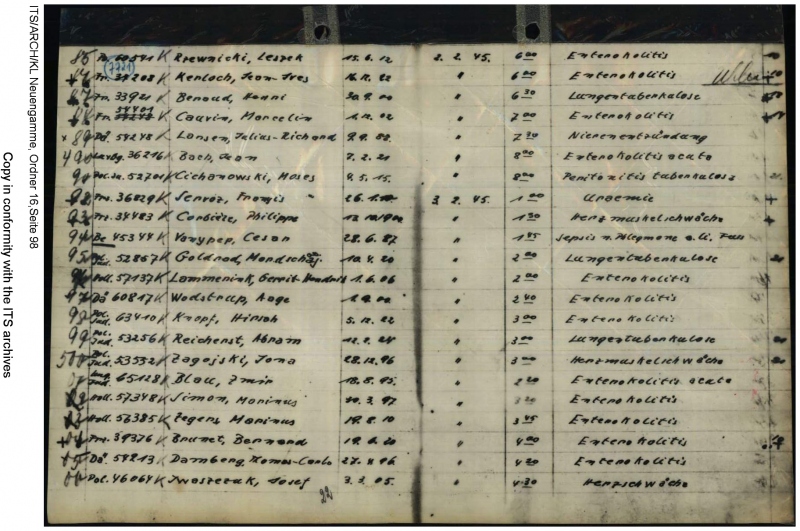 ITS/ARCH/KL Neuengamme, Ordner 16, Seite 98
Copy in conformity with the ITS archives
85 60541 K Rzewnicki, Leszek 15. 6. 12 2. 2. 45. 6 00 Enterokolitis
Fr. 34208 K Kerloch, Jean-Ives 16. 12. 22 " 6 00 Enterokolitis
87 Fr. 33921 K Benoud, Henri 30. 9. 00 " 6 30 Lungentuberkulose
88 Fr. K Cauvin, Marcelin " 7 00 Enterokolitis
x 89 Dä. 54248 K Lansen, Julius-Richard " 7 30 Nierenentzündung
490 Luxbg. 36216 K Bach, Jean 7. 2. 21 " 8 00 Enterokolitis acuta
91 52701 K Cichanowski, Moses 9. 5. 15. " 8 00 Peritonitis tuberkulosa
92 Frs. 36029 K 3. 2. 45. 1 00 Uraemie +
93 Frs. 34483 K Corbière, Philippe " 1 30 Herzmuskelschwäche +
94 Be 45344 K Cesar 28. 6. 87 " 1 45 Sepsis n. Flegmone a. li. Fuss
95 52867 K Goldrad, 10. 4. 20 " 2 00 Lungentuberkulose
96 Holl. 57137 K Lammerink, Gerrit-Hendrik 1. 6. 06 " 2 00 Enterokolitis
97 Dä 60817 K Wodstrup, Aage " 2 40 Enterokolitis
98 Pol. Jud. 63410 K Knopf, Hirsch 5. 12. 22 " 3 00 Enterokolitis
99 Pol. Jud. 53256 K Reichenst, Abram 12. 2. 24 " 3 00 Lungentuberkulose
500 Pol. Jud. 53532 K Zagojski, Jona 28. 12. 96 " 3 00 Herzmuskelschwäche
01 Jud. 65128 K Blau, Emir 18. 5. 95. " 2 20 Enterokolitis acuta
Holl. 57348 K Simon, Marinus 3. 97 " 3 20 Enterokolitis
Holl. 56385 K Zegers, Marinus 19. 8. 10 " 3 45 Enterokolitis
+ 04 Frs. 39376 K Brunet, Bernard 19. 6. 20 " 4 00 Enterokolitis
+ 05 Dä. 54213 K Damberg, Tomas-Carlo 27. " 4 20 Enterokolitis
06 Pol. 46064 K Iwaszczuk, Josef 3. 3. 05. " 4 30 Herzschwäche
22